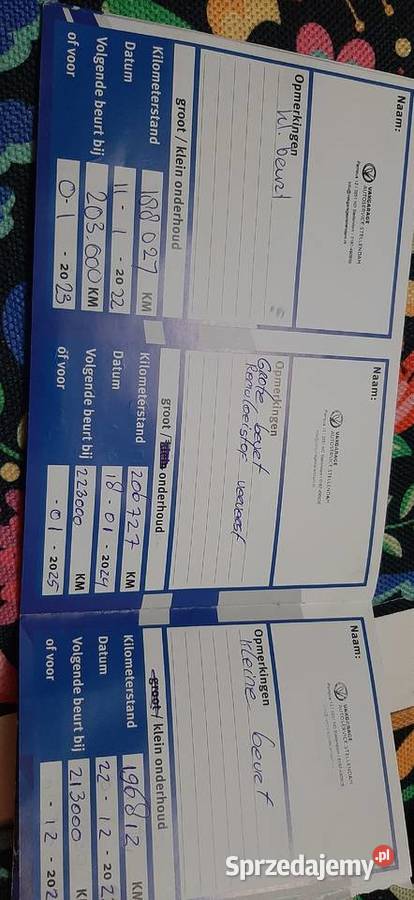 Naam:
VAKGARAGE
AUTOSERVICE STELLENDAM
Opmerkingen
kl. beurt
groot / klein onderhoud
Kilometerstand 188027 KM
Datum 11 - 1 - 2022
Volgende beurt bij 203.000 KM
of voor 0-1 - 2023
Naam:
VAKGARAGE
AUTOSERVICE STELLENDAM
Opmerkingen
Grote beurt
Remvloeistof ververst
groot / klein onderhoud
Kilometerstand 206727 KM
Datum 18 - 01 - 2024
Volgende beurt bij 223000 KM
of voor - 01 - 2025
Naam:
VAKGARAGE
AUTOSERVICE STELLENDAM
Opmerkingen
kleine beurt
groot / klein onderhoud
Kilometerstand 196812 KM
Datum 22 - 12 - 202
Volgende beurt bij 213000 K
of voor - 12 - 202
Sprzedajemy.pl